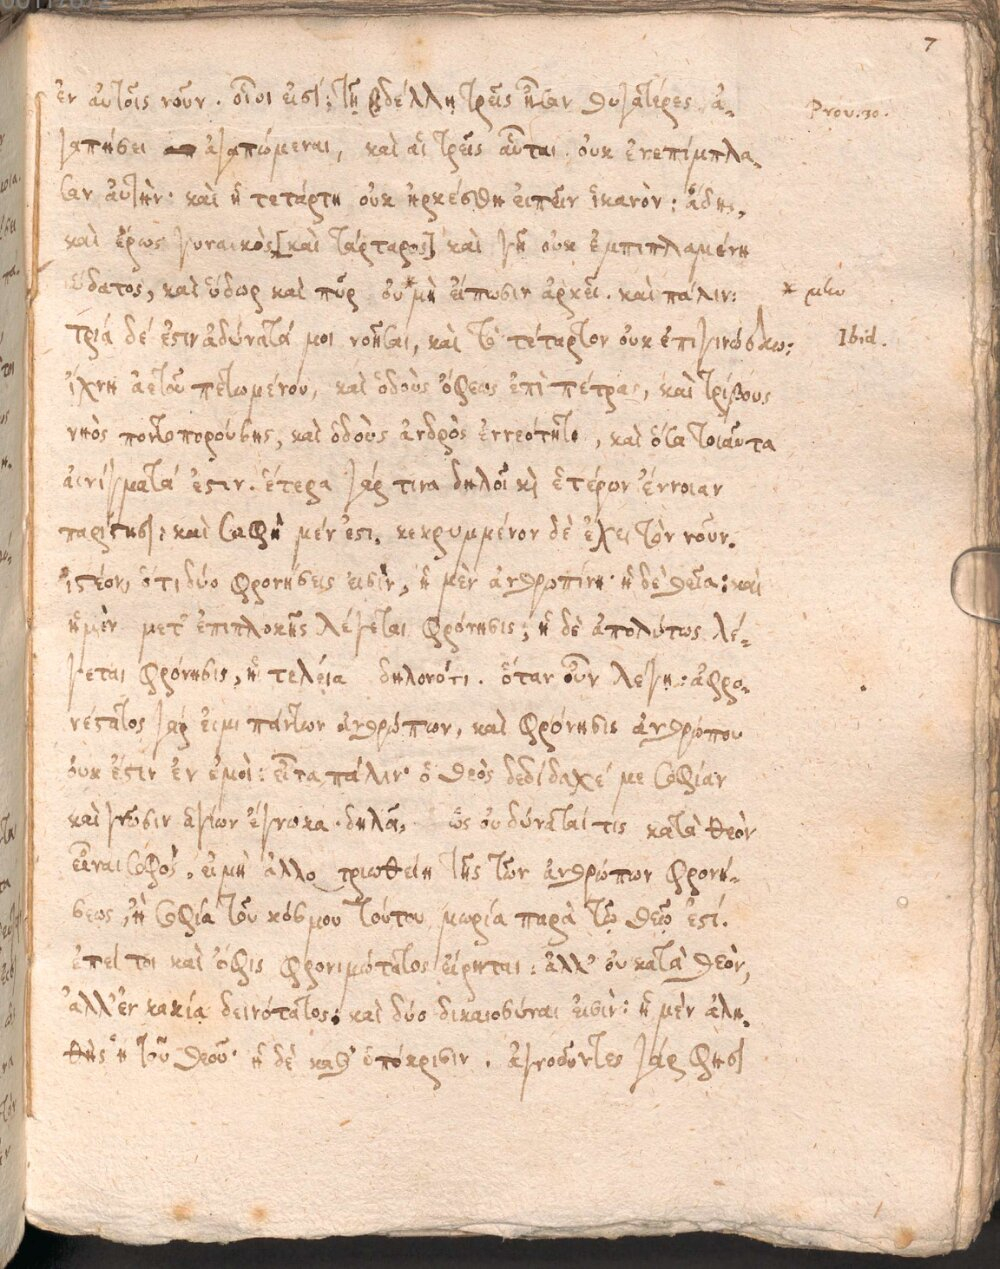 7
ἐν αὐτοῖς νοῦν. οἷοι εἰσί; τῇ βδέλλῃ τρεῖς ἦσαν θυγατέρες ἀ-
γαπήσει ἀγαπώμεναι, καὶ αἱ τρεῖς αὗται οὐκ ἐνεπίμπλα-
σαν αὐτὴν· καὶ ἡ τετάρτη οὐκ ἠρκέσθη εἰπεῖν ἱκανὸν: ἅδης,
καὶ ἔρως γυναικὸς [καὶ τάρταρος] καὶ γῆ οὐκ ἐμπιπλαμένη
ὕδατος, καὶ ὕδωρ καὶ πῦρ οὐ * μὴ εἴπωσιν ἀρκεῖ. καὶ πάλιν:
τρία δέ ἐστιν ἀδύνατά μοι νοῆσαι, καὶ τὸ τέταρτον οὐκ ἐπιγινώσκω:
ἴχνη ἀετοῦ πετωμένου, καὶ ὁδοὺς ὄφεως ἐπὶ πέτρας, καὶ τρίβους
νηὸς ποντοπορούσης, καὶ ὁδοὺς ἀνδρὸς ἐν νεότητι, καὶ ὅσα τοιαῦτα
αἰνίγματά ἐστιν. ἕτερα γάρ τινα δηλοῖ κὶ ἑτέρων ἔννοιαν
παρίστησι: καὶ σαφῆ μέν ἐστι, κεκρυμμένον δὲ ἔχει τὸν νοῦν.
ἰστέον, ὅτι δύο φρονήσεις εἰσίν, ἡ μὲν ἀνθρωπίνη· ἡ δὲ θεία: καὶ
ἡ μὲν μετ' ἐπιπλοκῆς λέγεται φρόνησις; ἡ δὲ ἀπολύτως λέ-
γεται φρόνησις, ἡ τελεία δηλονότι. ὅταν οὖν λέγῃ: ἀφρο-
νέστατος γάρ εἰμι πάντων ἀνθρώπων, καὶ φρόνησις ἀνθρώπου
οὐκ ἔστιν ἐν ἐμοί: εἶτα πάλιν· ὁ θεὸς δεδίδαχέ με σοφίαν
καὶ γνῶσιν ἁγίων ἔγνωκα· δηλοῖ, ὡς οὐ δύναταί τις κατὰ θεὸν
εἶναι σοφὸς, εἰ μὴ ἀλλοτριωθείη τῆς τῶν ἀνθρώπων φρονή-
σεως, ἡ σοφία τοῦ κόσμου τούτου μωρία παρὰ τῷ θεῷ ἐστί.
ἐπεί τοι καὶ ὄφις φρονιμώτατος εἴρηται: ἀλλ' οὐ κατὰ θεὸν,
ἀλλ' ἐν κακίᾳ δεινότατος: καὶ δύο δικαιοσύναι εἰσίν: ἡ μὲν ἀλη-
θὴς ἡ τοῦ θεοῦ· ἡ δὲ καθ' ὑπόκρισιν. ἀγνοοῦντες γάρ φησι
Prov. 30.
Ibid.